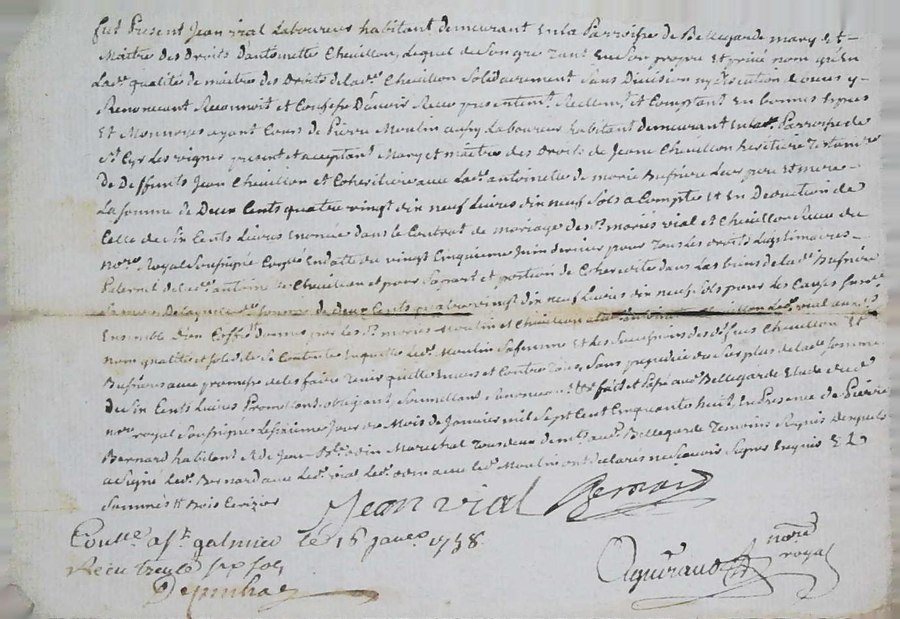 fut Present Jean vial Laboureur habitant demeurant En la Parroisse de Bellegarde mary Et
Maitre des Droits Dantoinette Cheuillon, Lequel de Son gre tant En Son propre Et privé nom qu'En
La de. qualité de maitre des Droits de la de. Cheuillon Solidairement Sans Division ny
Renoncant Reconnoit et Confesse D'avoir Receu presentemt. Reellemt. et Comptant En bonnes Espèces
Et Monnoyes ayant Cours de Pierre Moulin aussy Laboureur habitant demeurant En la Parroisse de
St. Cyr Les vignes present et acceptant Mary et maitre des Droits de Jeanne Cheuillon heritiere
De Deffunts Jean Cheuillon et Coheritiere aux La de. antoinette de marie Bufniere Leur pere Et mere
La Somme de Deux Cents quatre vingt dix neuf Livres dix neuf Sols a Compte Et En Deduction de
Celle de Six Cents Livres Enoncée dans le Contrat de mariage des dt. mariés vial et Cheuillon Receu du
Nore. Royal Soussigné En datte du vingt Cinquieme Juin dernier pour Tous Les droits Legitimaires
Paternel de antoinette Cheuillon et pour Sa part et portion de Coheritiere dans Les biens de la de. Bufniere
Sa mere, De laquelle de. Somme de Deux Cents quatre vingt dix neuf Livres dix neuf Sols pour Les Causes
Ensemble D'un Coffre donné par les dt. mariés Moulin et Cheuillon Le dt. vial
nom qualité et Solide Se Contente En quitte Le dt. Moulin Sa femme Et Les Successions des dt. feus Cheuillon Et
Bufniere avec promesse de les faire Tenir quitte Envers et Contre Tous, Sans prejudice du Surplus de la de. Somme
De Six Cents Livres Promettans, obligeant, Soumettans, Renoncant fait et Passé au dt. Bellegarde Etude du dt.
nore. royal Soussigné Le Seizième Jour du Mois de Janvier mil Sept Cent Cinquante huit, En Presence de Pierre
Bernard habitant Et de Jean Odin Marechal Tous deux demts. au dt. Bellegarde Temoins Requis Desquels
a Signé Le dt. Bernard avec Le dt. vial Le dt. odin avec Le dt. Moulin ont declarés ne Scavoir Signer Enquis Et
Sommés
Jean vial Bernard
Conlle. a St. galmier le 16 janer. 1758
Receu treize sols
nore
royal